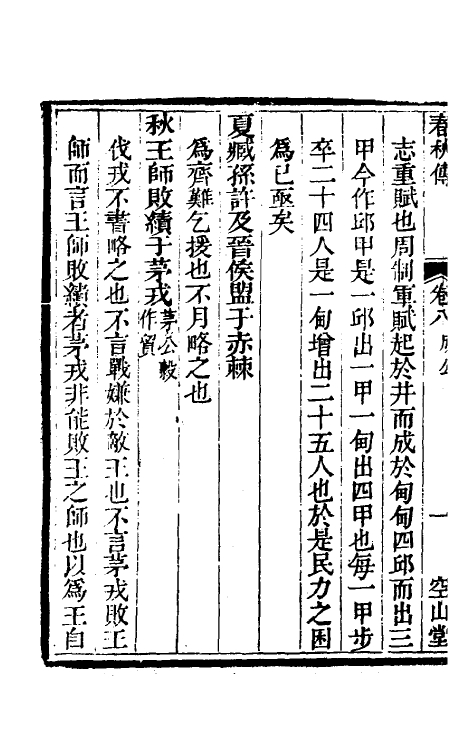 春秋傳 卷八 成公 一 空山堂
志重賦也周制軍賦起於井而成於甸甸四邱而出三
甲今作邱甲是一邱出一甲一甸出四甲也每一甲步
卒二十四人是一甸增出二十五人也於是民力之困
為已亟矣
夏臧孫許及晉侯盟于赤棘
為齊難乞援也不月略之也
秋王師敗績于茅戎茅公穀作貿
伐戎不書略之也不言戰嫌於敵王也不言茅戎敗王
師而言王師敗績者茅戎非能敗王之師也以為王自